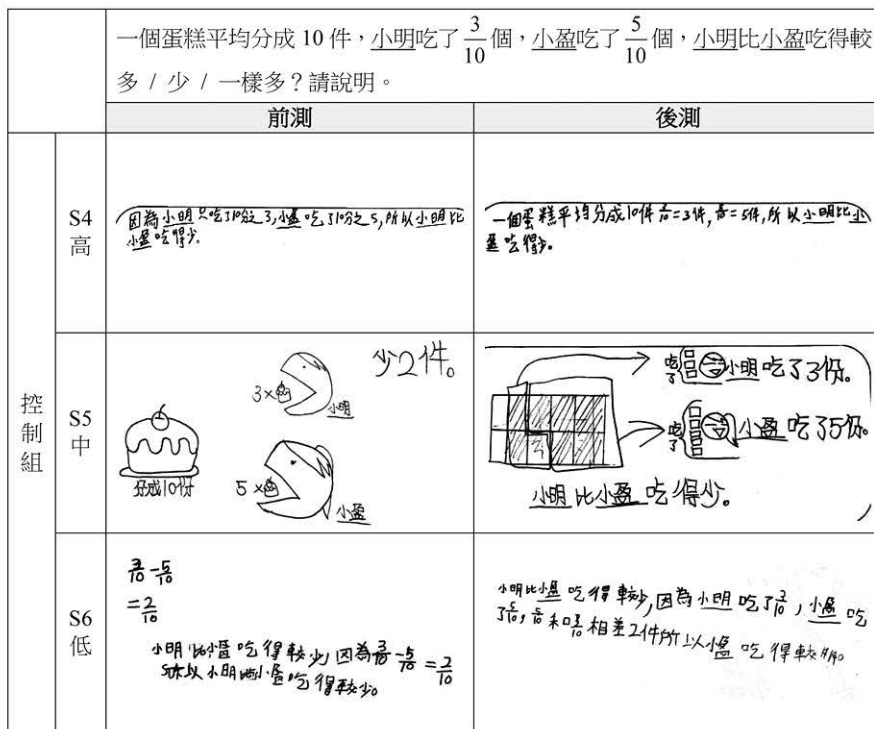 一個蛋糕平均分成 10 件，小明吃了 3/10 個，小盈吃了 5/10 個，小明比小盈吃得較
多 / 少 / 一樣多？請說明。
前測
後測
控制組
S4
高
因為小明只吃了10分之3,小盈吃了10分之5,所以小明比
小盈吃得少。
一個蛋糕平均分成10件 3/10=3件, 5/10=5件,所以小明比小
盈吃得少。
S5
中
少2件。
3×
小明
分成10份
5×
小盈
吃了
小明吃了3份。
吃了
小盈吃了5份。
小明比小盈吃得少。
S6
低
3/10-5/10
=2/10
小明比小盈吃得較少,因為3/10-5/10=2/10
所以小明比小盈吃得較少。
小明比小盈吃得較少,因為小明吃了3/10,小盈吃
了5/10,5/10和3/10相差2件所以小盈吃得較